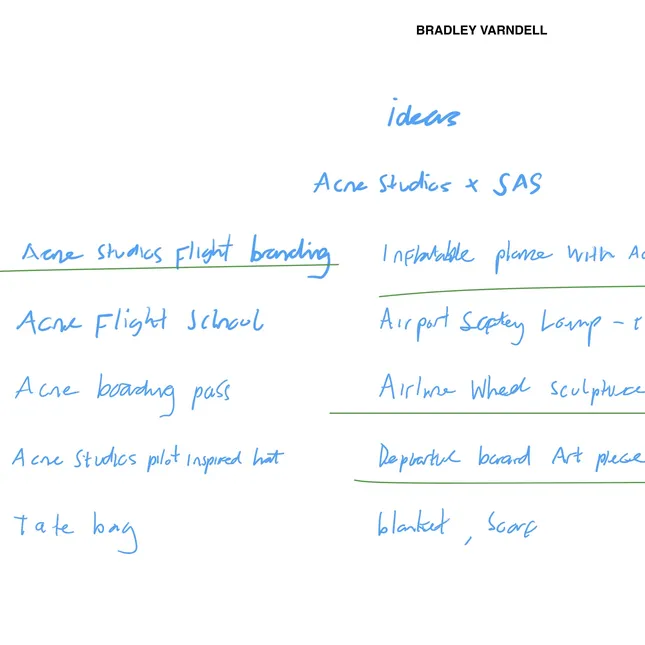 BRADLEY VARNDELL
ideas
Acne Studios x SAS
Acne Studios Flight branding
Inflatable plane with Ac
Acne Flight School
Airport Safety Lamp -
Acne boarding pass
Airline Wheel sculpture
Acne Studios pilot inspired hat
Departure board Art piece
Tate bag
blanket, Scarf